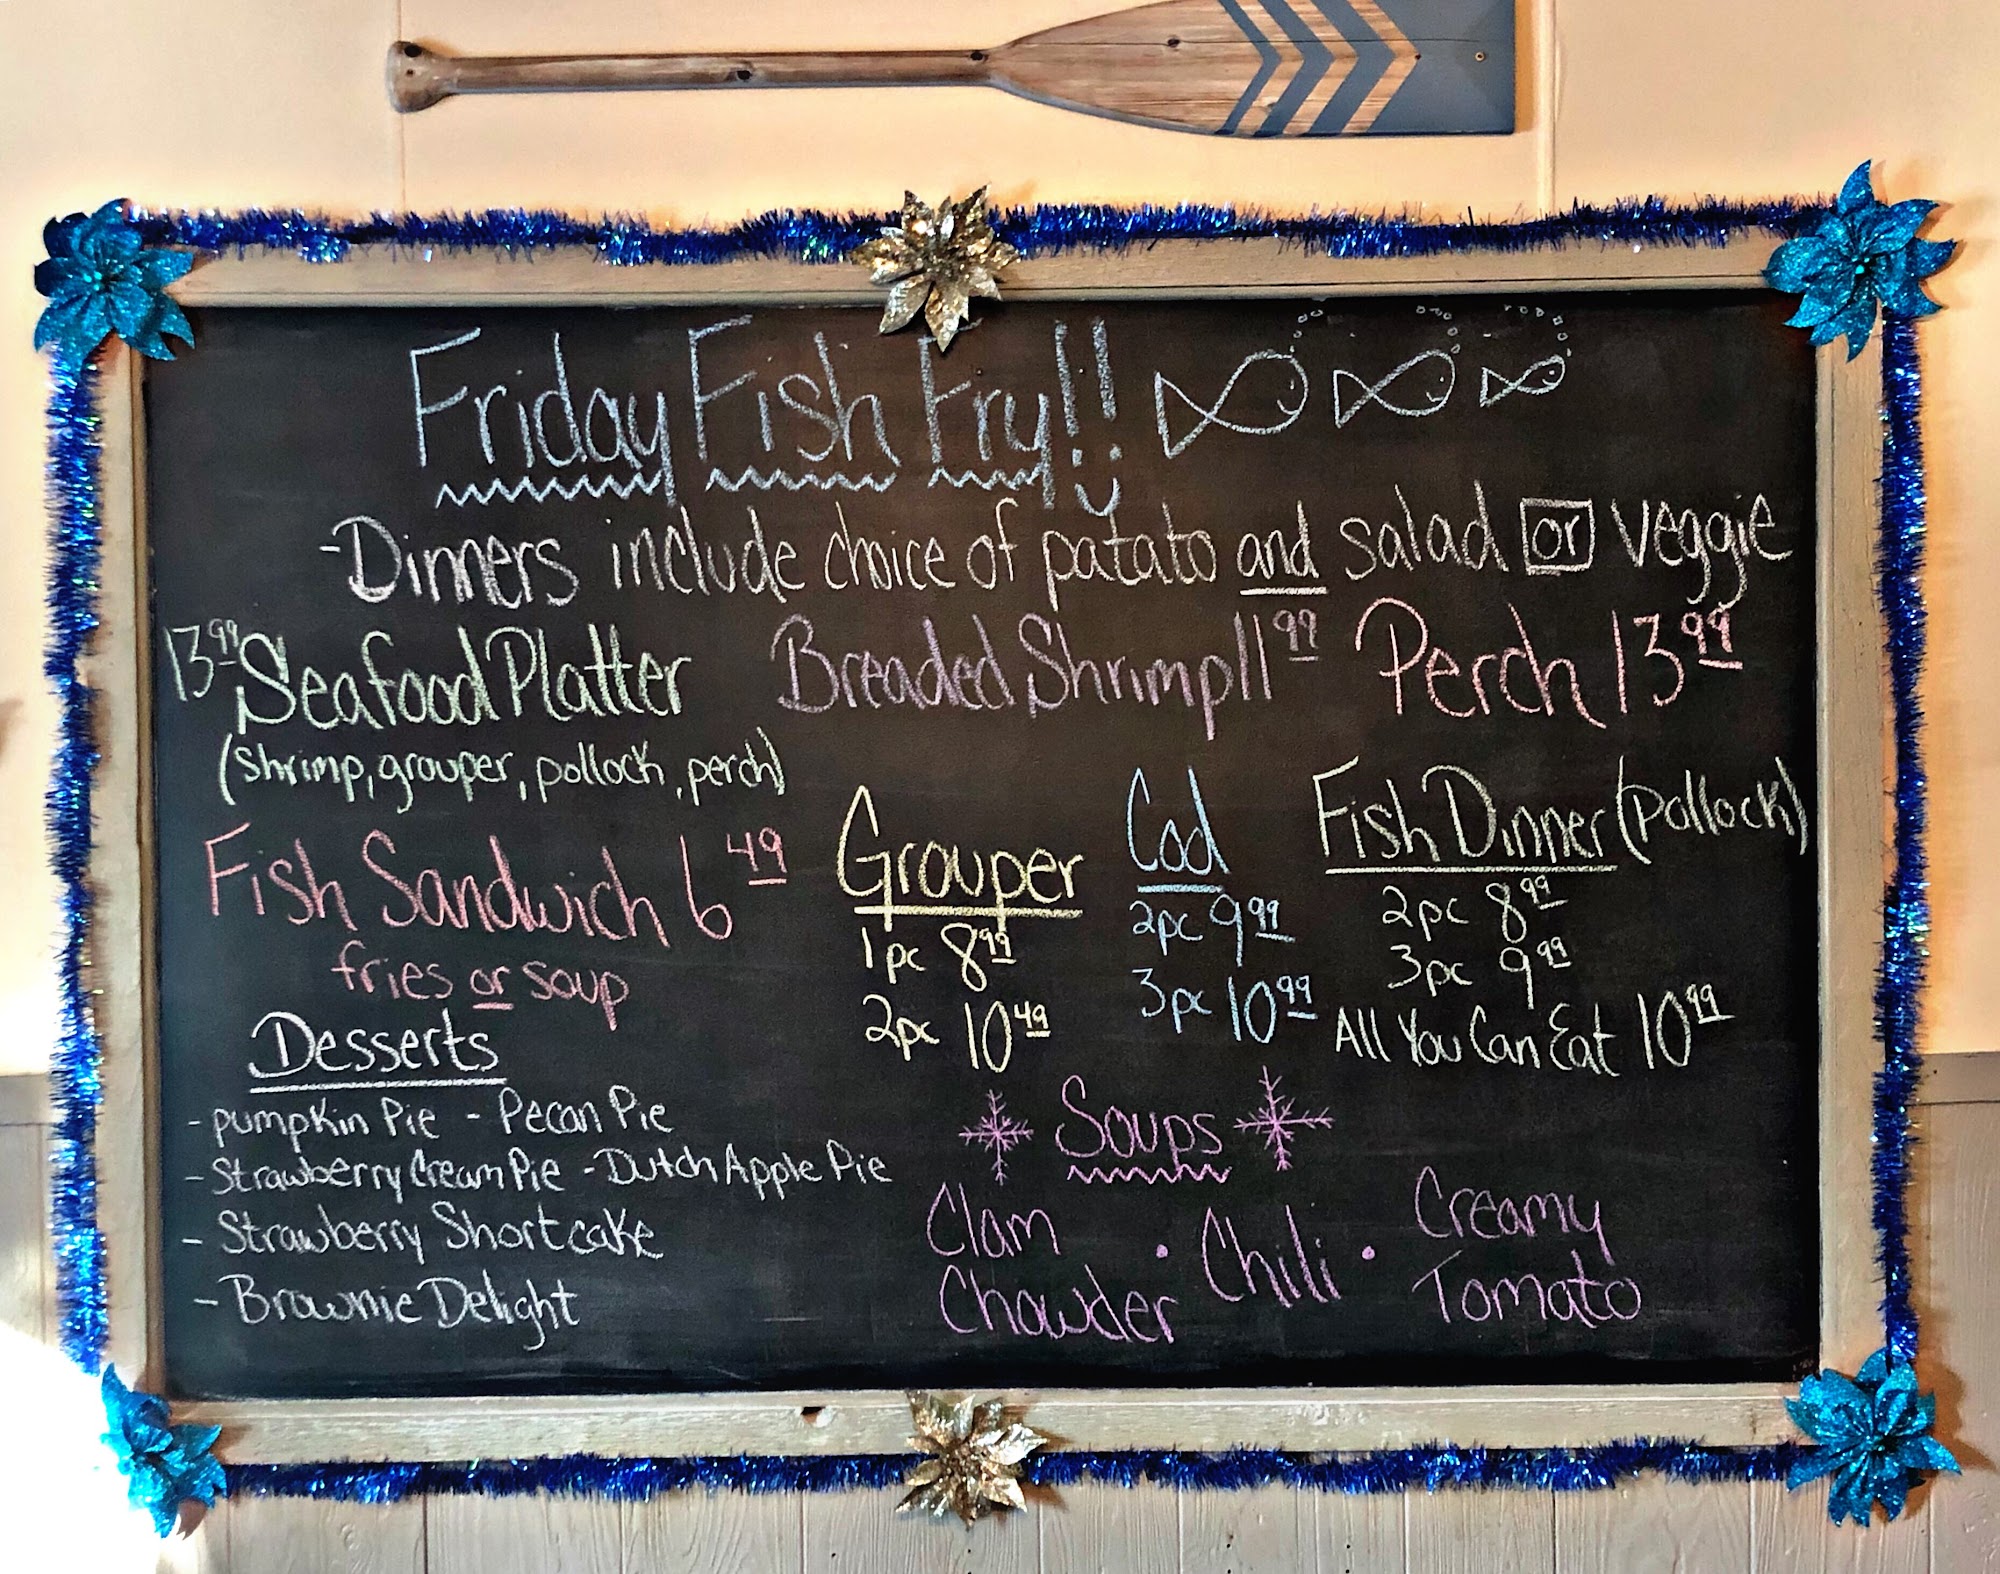 Friday Fish Fry!!
-Dinners include choice of patato and salad or veggie
13.99 Seafood Platter
(shrimp, grouper, pollock, perch)
Breaded Shrimp 11.99
Perch 13.99
Fish Sandwich 6.49
fries or soup
Grouper
1pc 8.99
2pc 10.49
Cod
2pc 9.99
3pc 10.99
Fish Dinner (pollock)
2pc 8.99
3pc 9.99
All You Can Eat 10.99
Desserts
- pumpkin Pie - Pecan Pie
- Strawberry Cream Pie - Dutch Apple Pie
- Strawberry Shortcake
- Brownie Delight
Soups
Clam Chowder • Chili • Creamy Tomato